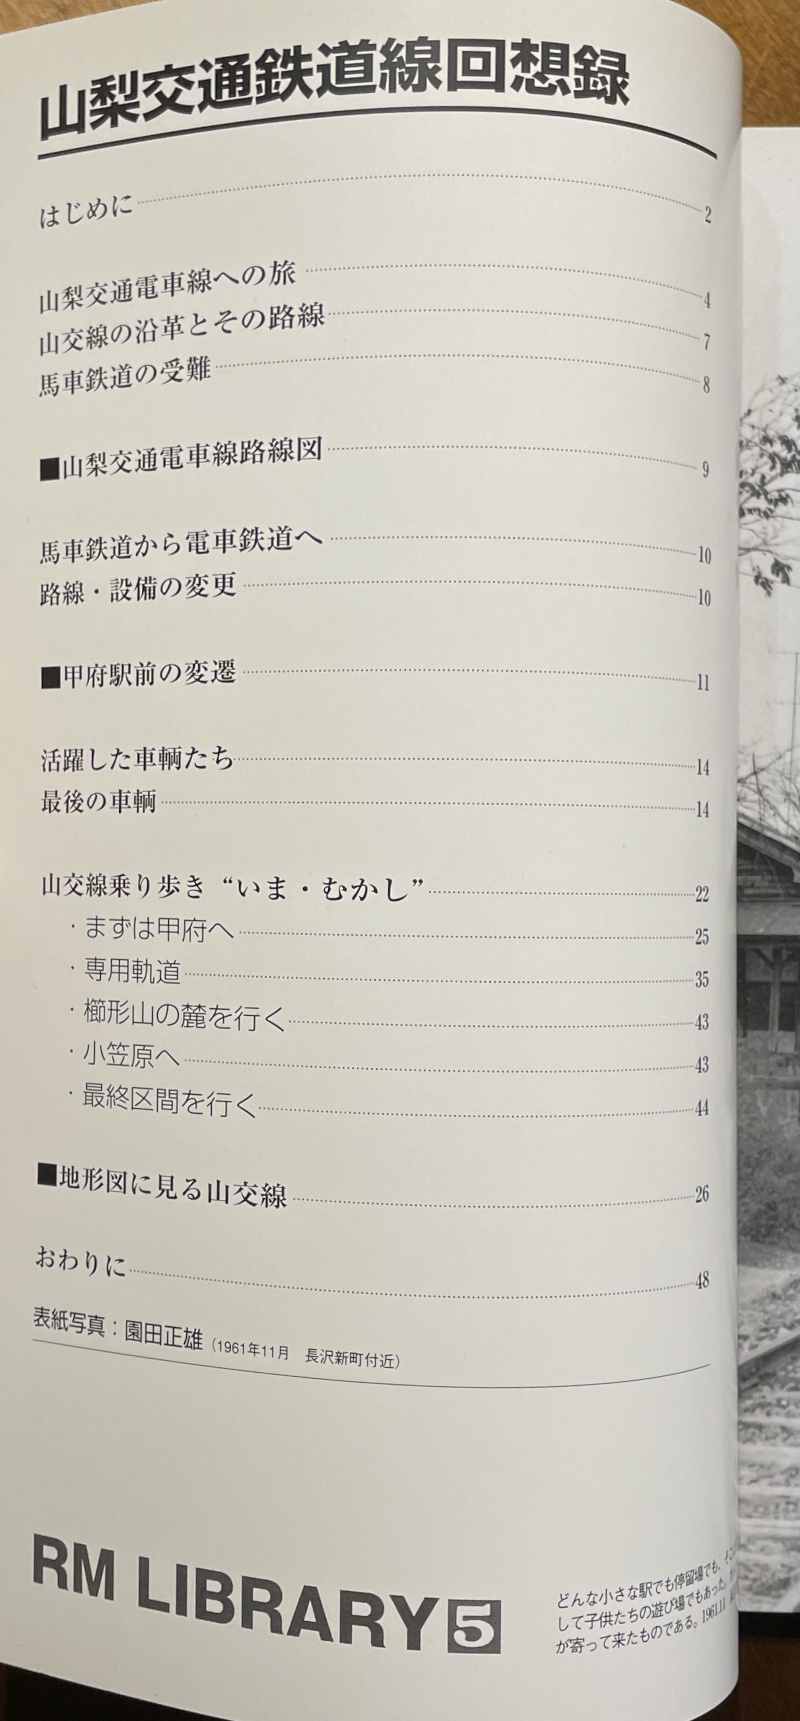 山梨交通鉄道線回想録
はじめに 2
山梨交通電車線への旅 4
山交線の沿革とその路線 7
馬車鉄道の受難 8
■山梨交通電車線路線図 9
馬車鉄道から電車鉄道へ 10
路線・設備の変更 10
■甲府駅前の変遷 11
活躍した車輌たち 14
最後の車輌 14
山交線乗り歩き“いま・むかし” 22
・まずは甲府へ 25
・専用軌道 35
・櫛形山の麓を行く 43
・小笠原へ 43
・最終区間を行く 44
■地形図に見る山交線 26
おわりに 48
表紙写真：園田正雄（1961年11月　長沢新町付近）
RM LIBRARY 5
どんな小さな駅でも停留場でも、そこ
して子供たちの遊び場でもあった。
が寄って来たものである。1961.11